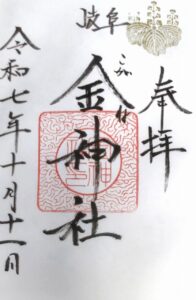 奉拝
岐阜
金神社
こがね
令和七年十月十一日